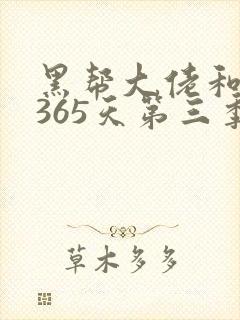 黑帮大佬和
365天第三季
草木多多